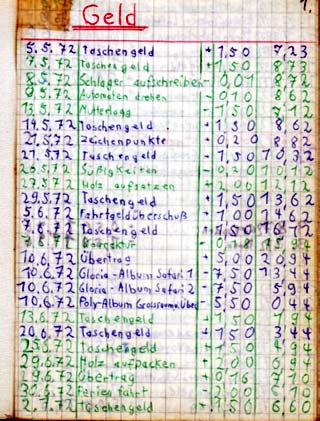 1.
Geld
5.5.72 Taschengeld + 1,50 7,23
7.5.72 Taschengeld + 1,50 8,73
8.5.72 Schlager aufschreiben - 0,01 8,72
9.5.72 Automaten drehen - 0,10 8,62
13.5.72 Muttertag - 1,50 7,12
19.5.72 Taschengeld + 1,50 8,62
21.5.72 Zeichenpunkte + 0,20 8,82
21.5.72 Taschengeld + 1,50 10,32
26.5.72 Süßigkeiten - 0,20 10,12
27.5.72 Holz aufsetzen + 2,00 12,12
29.5.72 Taschengeld + 1,50 13,62
5.6.72 Fahrtgeldüberschuß + 1,00 14,62
7.6.72 Taschengeld + 1,50 16,12
7.6.72 Korrektur - 0,18 15,94
10.6.72 Übertrag + 5,00 20,94
10.6.72 Gloria-Album Safari 1 - 7,50 13,44
10.6.72 Gloria-Album Safari 2 - 7,50 5,94
10.6.72 Poly-Album - 5,50 0,44
13.6.72 Taschengeld + 1,50 1,94
20.6.72 Taschengeld + 1,50 3,44
25.6.72 Taschengeld + 1,50 4,94
29.6.72 Holz aufpacken + 2,00 6,94
29.6.72 Übertrag + 0,16 7,10
30.6.72 Ferienfahrt
2.7.72 Taschengeld + 1,50 6,60